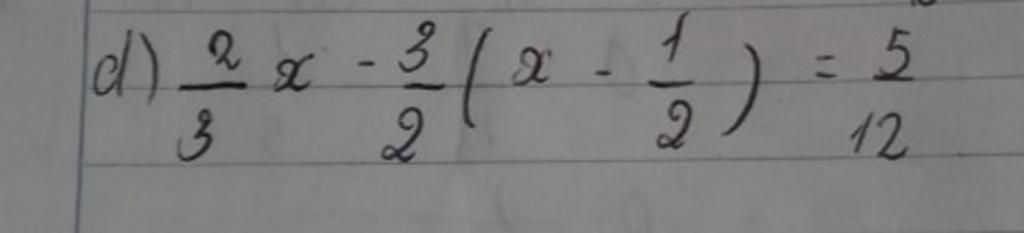 d) 2/3 x - 3/2 ( x - 1/2 ) = 5/12